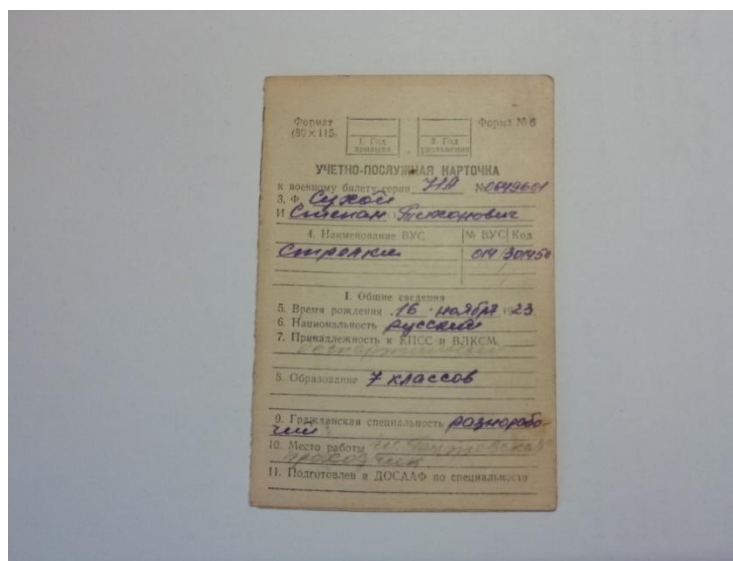 Формат Форма № 6
(80×115)
1. Год призыва 2. Год увольнения
УЧЕТНО-ПОСЛУЖНАЯ КАРТОЧКА
к военному билету серии НА №
3. Ф. Сухой
И Степан Тихонович
4. Наименование ВУС № ВУС Код
Стрелки 014 301450
I. Общие сведения
5. Время рождения 16 ноября 1923
6. Национальность русский
7. Принадлежность к КПСС и ВЛКСМ
беспартийный
8. Образование 7 классов
9. Гражданская специальность разнорабо-
чий
10. Место работы
проходчик
11. Подготовлен в ДОСААФ по специальности